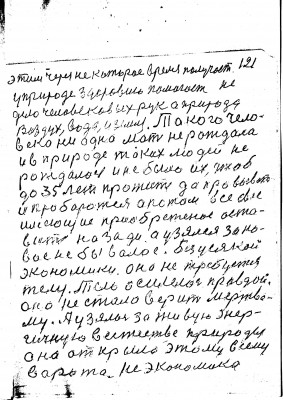 этим через некоторое время получает 121
у природе здоровие помогает не
дело человековых рук а природа
воздух, вода, и земля. Такого чело-
века ни одна мать не рождала
и в природе таких людей не
рождалось и не было их, чтоб
до 35 лет прожить да провывать
и пробаротся а потом все свое
имеющие приобретеное оста-
вить назади. а узялся за но-
вое не бывалое. Безусякой
экономики. она не требуется
телу. Тело осилилось правдой.
она не стала верит мертво-
му. А узялась за живую энер-
гичную в естестве природу
она открыла этому всему
варота. Не экономика